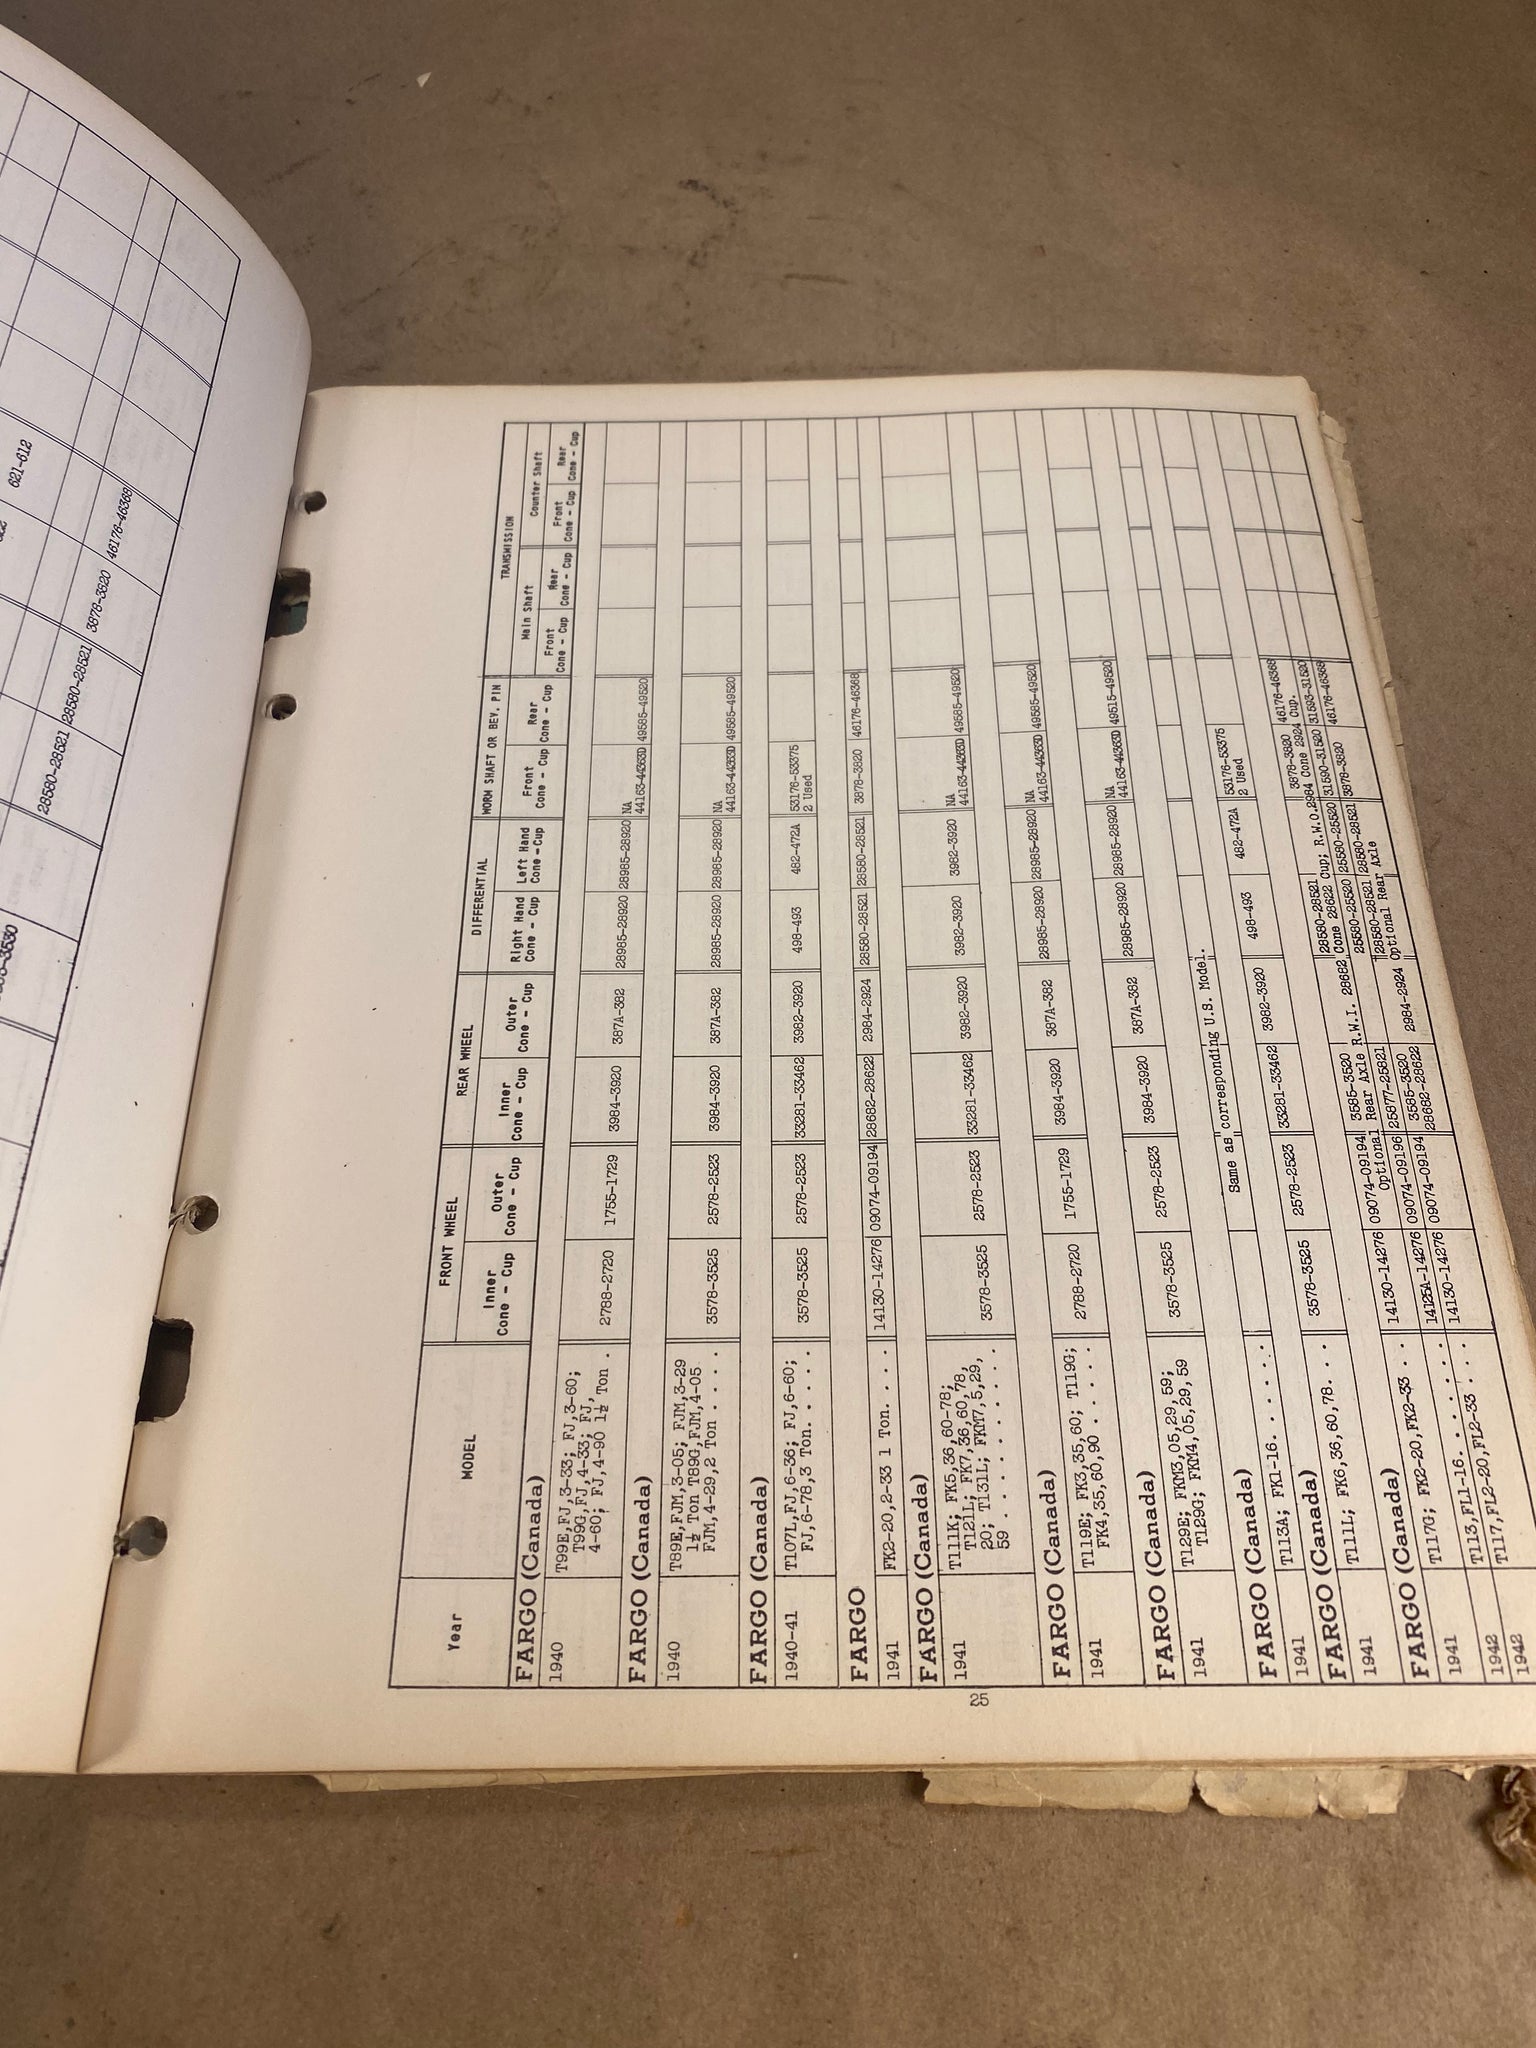 621-612
46176-46368
3878-3820
28580-28521
28580-28521
Year
MODEL
FRONT WHEEL
REAR WHEEL
DIFFERENTIAL
WORM SHAFT OR BEV. PIN
TRANSMISSION
Main Shaft
Counter Shaft
Inner Cone - Cup
Outer Cone - Cup
Inner Cone - Cup
Outer Cone - Cup
Right Hand Cone - Cup
Left Hand Cone - Cup
Front Cone - Cup
Rear Cone - Cup
Front Cone - Cup
Rear Cone - Cup
Front Cone - Cup
Rear Cone - Cup
FARGO (Canada)
1940 T99E,FJ,3-33; FJ,3-60;
T99G,FJ,4-33; FJ,
4-60; FJ,4-90 1½ Ton . 2788-2720 1755-1729 3984-3920 387A-382 28985-28920 28985-28920 NA 44163-44363D 49585-49520
FARGO (Canada)
1940 T89E,FJM,3-05; FJM,3-29
1½ Ton T89G,FJM,4-05
FJM,4-29,2 Ton . . . . 3578-3525 2578-2523 3984-3920 387A-382 28985-28920 28985-28920 NA 44163-44363D 49585-49520
FARGO (Canada)
1940-41 T107L,FJ,6-36; FJ,6-60;
FJ,6-78,3 Ton. . . . . 3578-3525 2578-2523 33281-33462 3982-3920 498-493 482-472A 53176-53375 2 Used
FARGO
1941 FK2-20,2-33 1 Ton. . . . 14130-14276 09074-09194 28682-28622 2984-2924 28580-28521 28580-28521 3878-3820 46176-46368
FARGO (Canada)
1941 T111K; FK5,36,60-78;
T121L; FK7,36,60,78,
20; T131L; FKM7,5,29,
59 . . . . . . . . . . 3578-3525 2578-2523 33281-33462 3982-3920 3982-3920 3982-3920 NA 44163-44363D 49585-49520
FARGO (Canada)
1941 T119E; FK3,35,60; T119G;
FK4,35,60,90 . . . . . 2788-2720 1755-1729 3984-3920 387A-382 28985-28920 28985-28920 NA 44163-44363D 49585-49520
FARGO (Canada)
1941 T129E; FKM3,05,29,59;
T129G; FKM4,05,29,59 3578-3525 2578-2523 3984-3920 387A-382 28985-28920 28985-28920 NA 44163-44363D 49515-49520
FARGO (Canada)
1941 T113A; FK1-16. . . . . . Same as corresponding U.S. Model.
FARGO (Canada)
1941 T111L; FK6,36,60,78. . . 3578-3525 2578-2523 33281-33462 3982-3920 498-493 482-472A 53176-53375 2 Used
FARGO (Canada)
1941 T117G; FK2-20,FK2-33 . . 14130-14276 09074-09194 3585-3520 28580-28521 3878-3820 46176-46368
Optional Rear Axle R.W.I. 28682 Cone 28622 Cup; R.W.O. 2984 Cone 2924 Cup.
1942 T113,FL1-16. . . . . . . 14125A-14276 09074-09196 25877-25821 25580-25520 25580-25520 31590-31520 31593-31520
1942 T117,FL2-20,FL2-33 . . . 14130-14276 09074-09194 3585-3520 28580-28521 28580-28521 3878-3820 46176-46368
28682-28622 2984-2924 Optional Rear Axle
25